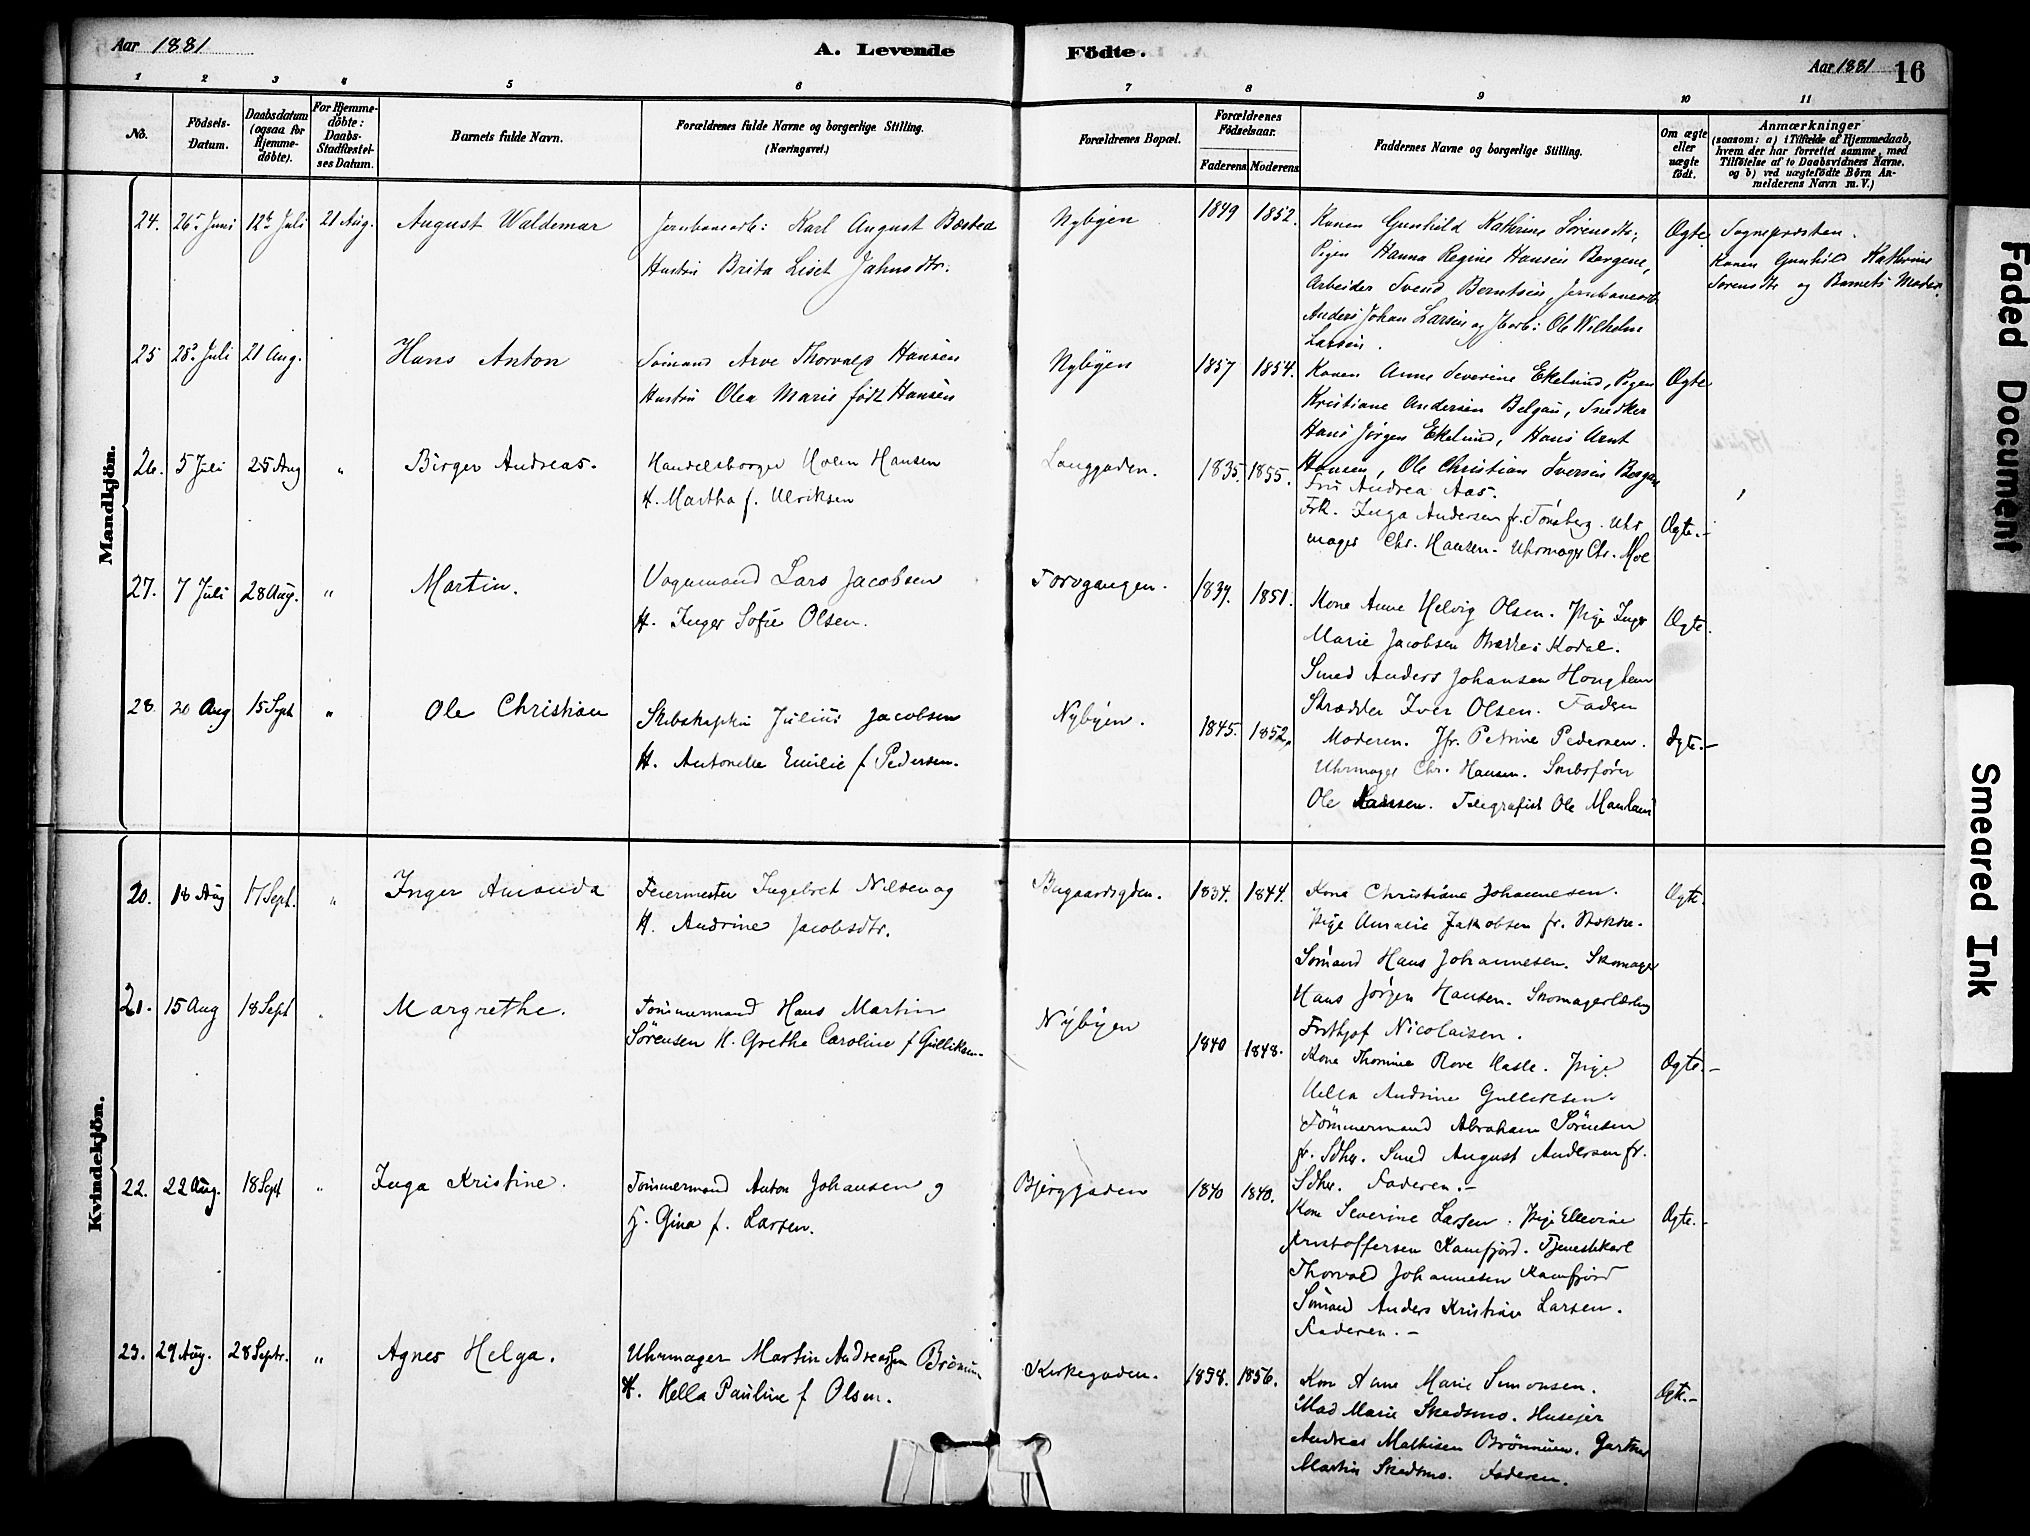 Aar 1881
A. Levende Födte.
Aar 1881
16
1 2 3 4 5 6 7 8 9 10 11
No.
Födsels-Datum.
Daabsdatum (ogsaa for Hjemme-döbte).
For Hjemme-döbte: Daabs-Stadfæstel-ses Datum.
Barnets fulde Navn.
Forældrenes fulde Navne og borgerlige Stilling.
(Næringsvei.)
Forældrenes Bopæl.
Forældrenes Födselsaar.
Faderens Moderens
Faddernes Navne og borgerlige Stilling.
Om ægte eller uægte födt.
Anmærkninger
(saasom: a) i Tilfælde af Hjemmedaab,
hvem der har forrettet samme, med
Tilföielse af to Daabsvidners Navne.
og b) ved uægtefödte Börn An-
melderens Navn m. V.)
Mandkjön.
24. 26 Juni 12te Juli 21 Aug. August Waldemar
Jernbanearb: Karl August Bæsted
Hustru Brita Liset Jahnsdtr.
Nybyen 1849 1852.
Konen Gunhild Kathrine Sørensdtr,
Pigen Hanna Regine Hansen Bergene,
Arbeider Svend Berntsen, Jernbanearb
Anders Johan Larsen og Jbarb: Ole Wilhelm
Larsen.
Ægte
Sognepresten.
Konen Gunhild Kathrine
Sørensdtr og Barnets Moder.
25 28 Juli 21 Aug. Hans Anton
Sømand Arve Thorvald Hansen
Hustru Olea Marie født Hansen
Nybyen 1857 1854.
Konen Anne Severine Ekelund, Pigen
Kristiane Andersen Belgau, Snedker
Hans Jørgen Ekelund, Hans Arnt
Hansen, Ole Christian Iversen Bergan
Ægte
26. 5 Juli 25 Aug " Birger Andreas.
Handelsborger Holm Hansen
H. Martha f. Ulriksen
Langgaden. 1835. 1855.
Fru Andrea Aas.
Frk. Inga Andersen fr. Tønsberg. Uhr
mager Chr. Hansen. Uhrmager Chr. Moe
Ægte.-
27. 7 Juli 28 Aug. " Martin.
Vognmand Lars Jacobsen
H. Inger Sofie Olsen.
Torvgangen. 1839. 1851.
Kone Anne Helvig Olsen. Pige Inger
Marie Jacobsen Kodal.
Smed Anders Johansen
Skrædder Iver Olsen. Faderen
Ægte.
28. 20 Aug 15 Sept " Ole Christian
Skibskaptn Julius Jacobsen
H. Antonette Emilie f Pedersen.
Nybyen. 1845. 1852.
Moderen. Jfr. Petrine Pedersen.
Uhrmager Chr. Hansen. Skibsfører
Ole Hansen. Telegrafist Ole
Ægte.-
Kvindekjön.
20. 18 Aug 17 Sept. " Inger Amanda
Feiermester Ingebret Nilsen og
H. Andrine Jacobsdtr.
Bugaardsgden. 1834. 1844.
Kone Christiane Johannesen.
Pige Amalie Jakobsen fr. Stokke.
Sømand Hans Johannesen. Skomager
Hans Jörgen Hansen. Skomagerlærling
Frithjof Nicolaisen.
Ægte.
21. 15 Aug 18 Sept " Margrethe.
Tømmermand Hans Martin
Sørensen H. Grethe Caroline f Gulliksen.
Nybyen 1840 1848.
Kone Thomine Rove Hasle. Pige
Hella Andrine Gulliksen.
Tømmermand Abraham Sørensen
fr. Sdhr. Smed August Andersen fr.
Sdhr. Faderen.-
Ægte.-
22. 22 Aug. 18 Sept " Inga Kristine.
Tømmermand Anton Johansen og
H. Gina f. Larsen.
Bjerggaden 1840 1840.
Kone Severine Larsen. Pige Ellevine
Kristoffersen Kamfjord. Tjenestekarl
Thorvald Johannesen Kamfjord
Sømand Anders Kristian Larsen.
Faderen.-
Ægte.-
23. 29 Aug. 28 Septr. " Agnes Helga.
Uhrmager Martin Andreassen Brönnum
H. Hella Pauline f Olsen.
Kirkegaden. 1858. 1856.
Kone Anne Marie Simonsen.
Mad Marie Skedsmo. Huseier
Andreas Mathisen Brönnum. Gartner
Martin Skedsmo. Faderen.
Ægte.-
Faded Document
Smeared Ink